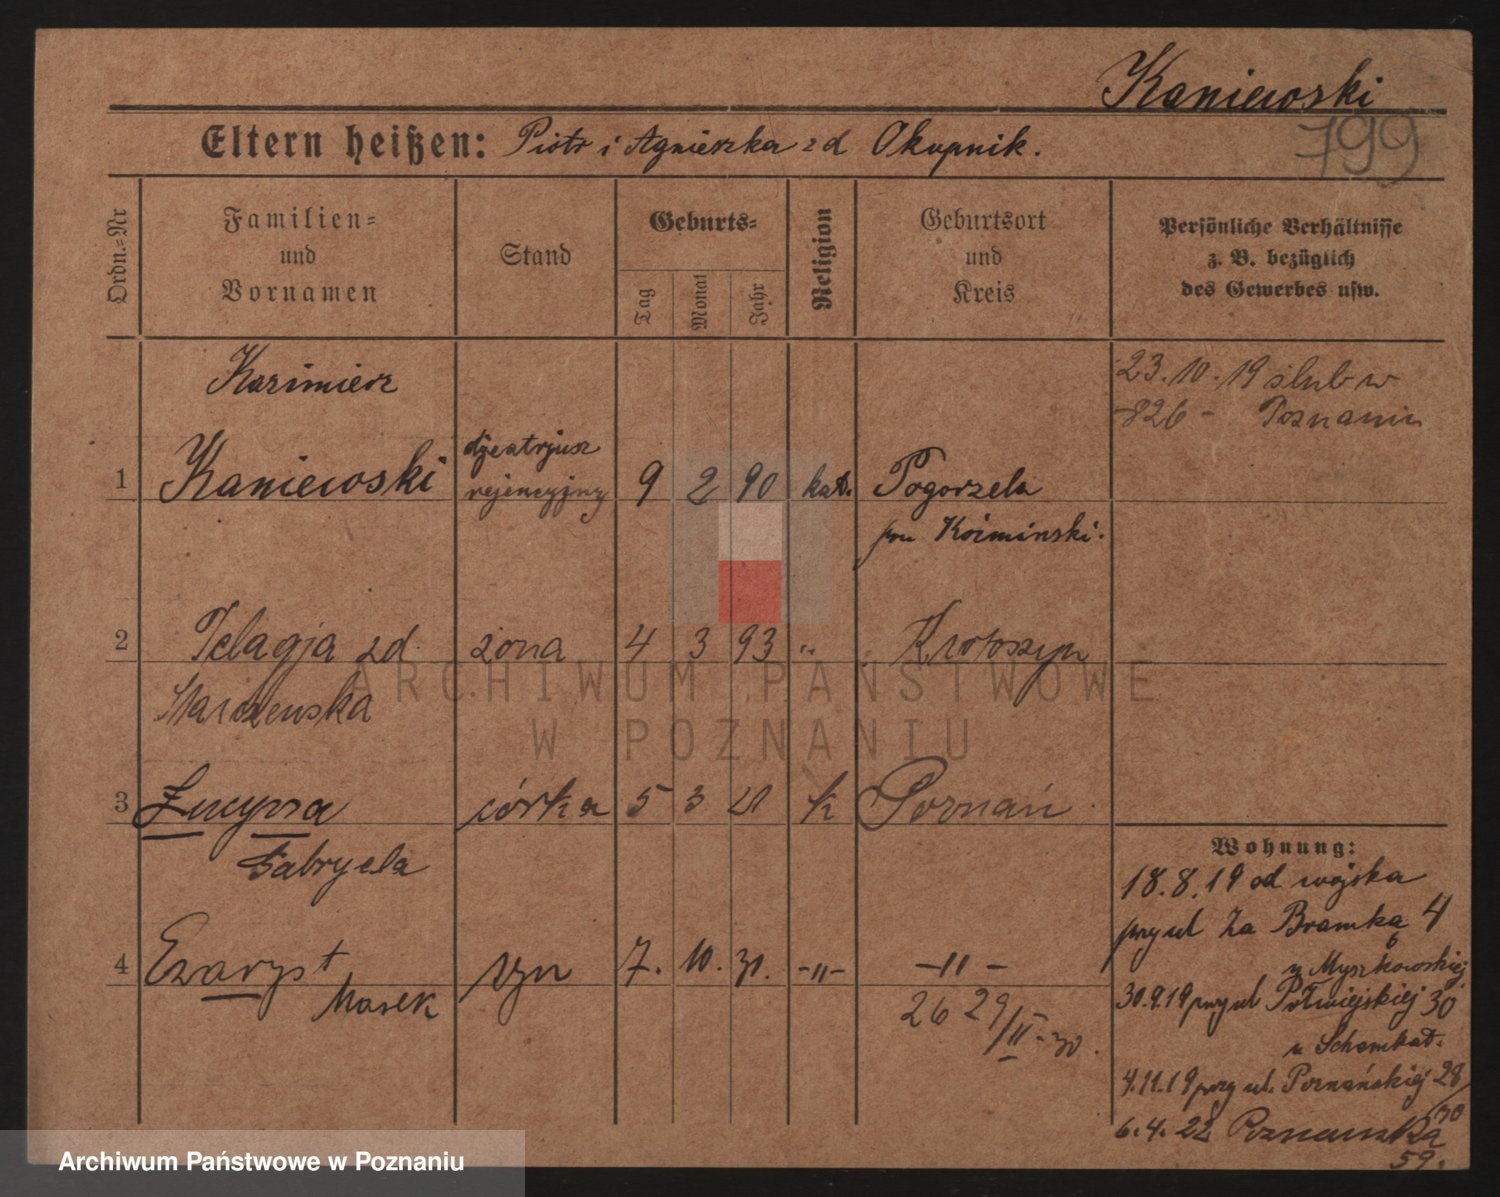 Kaniewski
799
Eltern heißen: Piotr i Agnieszka zd Okupnik.
Ordn.=Nr
Familien=
und
Vornamen
Stand
Geburts=
Tag
Monat
Jahr
Religion
Geburtsort
und
Kreis
Persönliche Verhältnisse
z. B. bezüglich
des Gewerbes usw.
Kazimierz
23.10.19 ślub w
826 - Poznaniu
1 Kaniewski djeatrjusz rejencyjny 9 2 90 kat. Pogorzela
pow Koźmiński.
2 Pelagja zd żona 4 3 93 " Krotoszyn
3 Łucyna córka 5 3 21 k Poznań
Gabryela
4 Ewaryst syn 7. 10. 31. -"- -"-
Marek
26 29/II-30.
Wohnung:
18.8.19 od wojska
przy ul Za Bramka 4
u Myszkowskiej
30.9.19 przy ul Półwiejskiej 30
u
4.11.19 przy ul. Poznańskiej 28/30
6.4.22 Poznańska
59.
ARCHIWUM PAŃSTWOWE
W POZNANIU
Archiwum Państwowe w Poznaniu